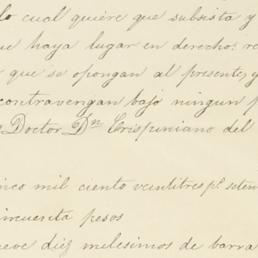 lo cual quiere que subsista y
ue haya lugar en derecho: re
que se opongan al presente, y
contravengan bajo ningun p
Doctor Dn Crispiniano del
nco mil ciento veintitres ps. seten
incuenta pesos
eve diez milesimos de barra